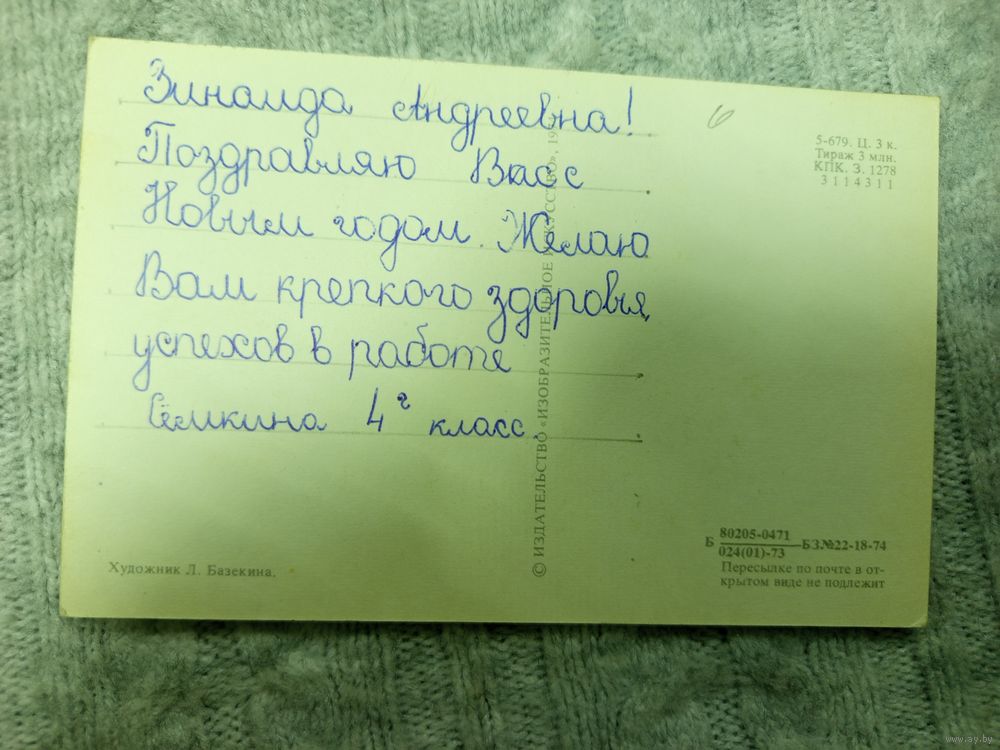 Зинаида Андреевна!
Поздравляю Васс
Новым годом. Желаю
Вам крепкого здоровья,
успехов в работе
Сёмкина 4г класс.
6
5-679. Ц. 3 к.
Тираж 3 млн.
КПК. З. 1278
3114311
© ИЗДАТЕЛЬСТВО «ИЗОБРАЗИТЕЛЬНОЕ ИСКУССТВО»,
Б 80205-0471
024(01)-73 —БЗ№22-18-74
Пересылке по почте в от-
крытом виде не подлежит
Художник Л. Базекина.
www.ay.by